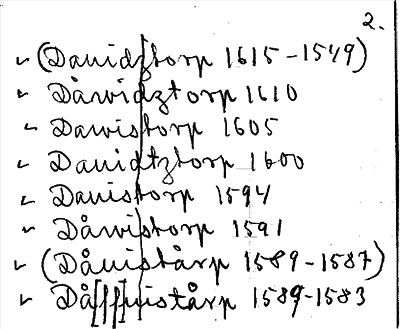 2.
(Dauidztorp 1615-1549)
Dåwidztorp 1610
Dawistorp 1605
Dauidtztorp 1600
Dauistorp 1594
Dåwistorp 1591
(Dåuistårp 1589-1587)
Då[ff]uistårp 1589-1583